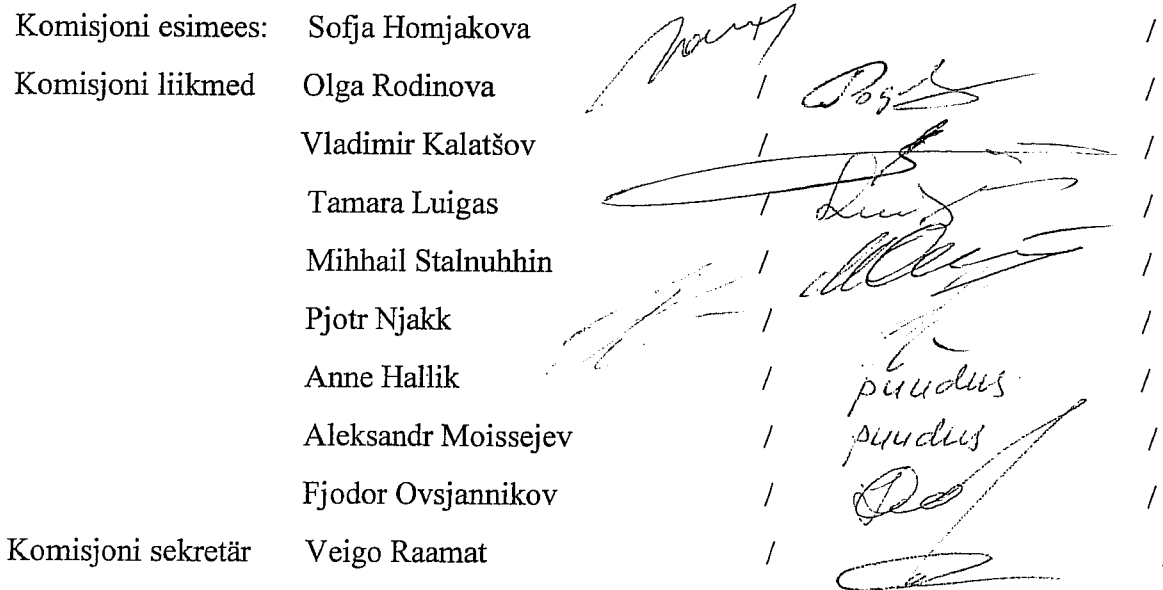 Komisjoni esimees: Sofja Homjakova /
Komisjoni liikmed Olga Rodinova / /
Vladimir Kalatšov / /
Tamara Luigas / /
Mihhail Stalnuhhin / /
Pjotr Njakk / /
Anne Hallik / puudus /
Aleksandr Moissejev / puudus /
Fjodor Ovsjannikov / /
Komisjoni sekretär Veigo Raamat /